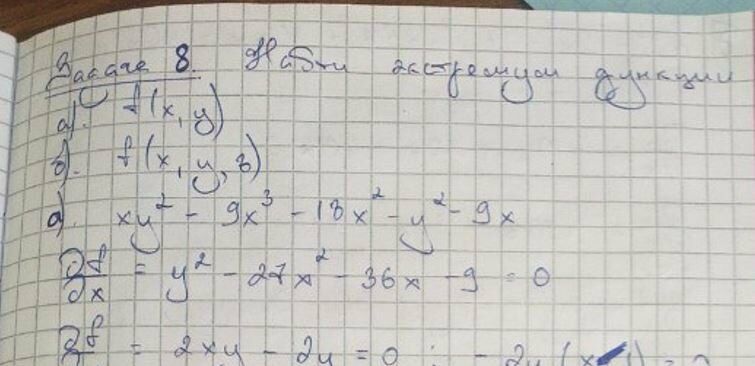 Задача 8. Найти экстремум функции
а). f(x, y)
б). f(x, y, z)
а). xy² - 9x³ - 18x² - y² - 9x
∂f/∂x = y² - 27x² - 36x - 9 = 0
= 2xy - 2y = 0